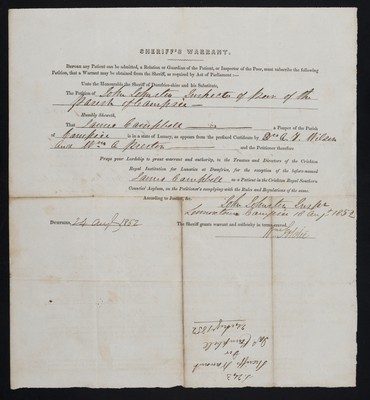 SHERIFF'S WARRANT.
BEFORE any Patient can be admitted, a Relation or Guardian of the Patient, or Inspector of the Poor, must subscribe the following
Petition, that a Warrant may be obtained from the Sheriff, as required by Act of Parliament:—
Unto the Honourable the Sheriff of Dumfries-shire and his Substitute,
The Petition of John Johnston Inspector of Poor of the
Parish of Campsie
Humbly Sheweth,
That James Campbell is a Pauper of the Parish
of Campsie is in a state of Lunacy, as appears from the prefixed Certificate by Drs A. F. Wilson
and Wm A. Preston and the Petitioner therefore
Prays your Lordship to grant warrant and authority, to the Trustees and Directors of the Crichton
Royal Institution for Lunatics at Dumfries, for the reception of the before-named
James Campbell as a Patient in the Crichton Royal Southern
Counties Asylum, on the Petitioner's complying with the Rules and Regulations of the same.
According to Justice, &c.
John Johnston Inspr
Lennoxtown Campsie 18 Augt 1852
DUMFRIES, 24 Augt 1852 The Sheriff grants warrant and authority in terms craved.
Sheriffs Warrant
for
Jas Campbell
24 Augt 1852